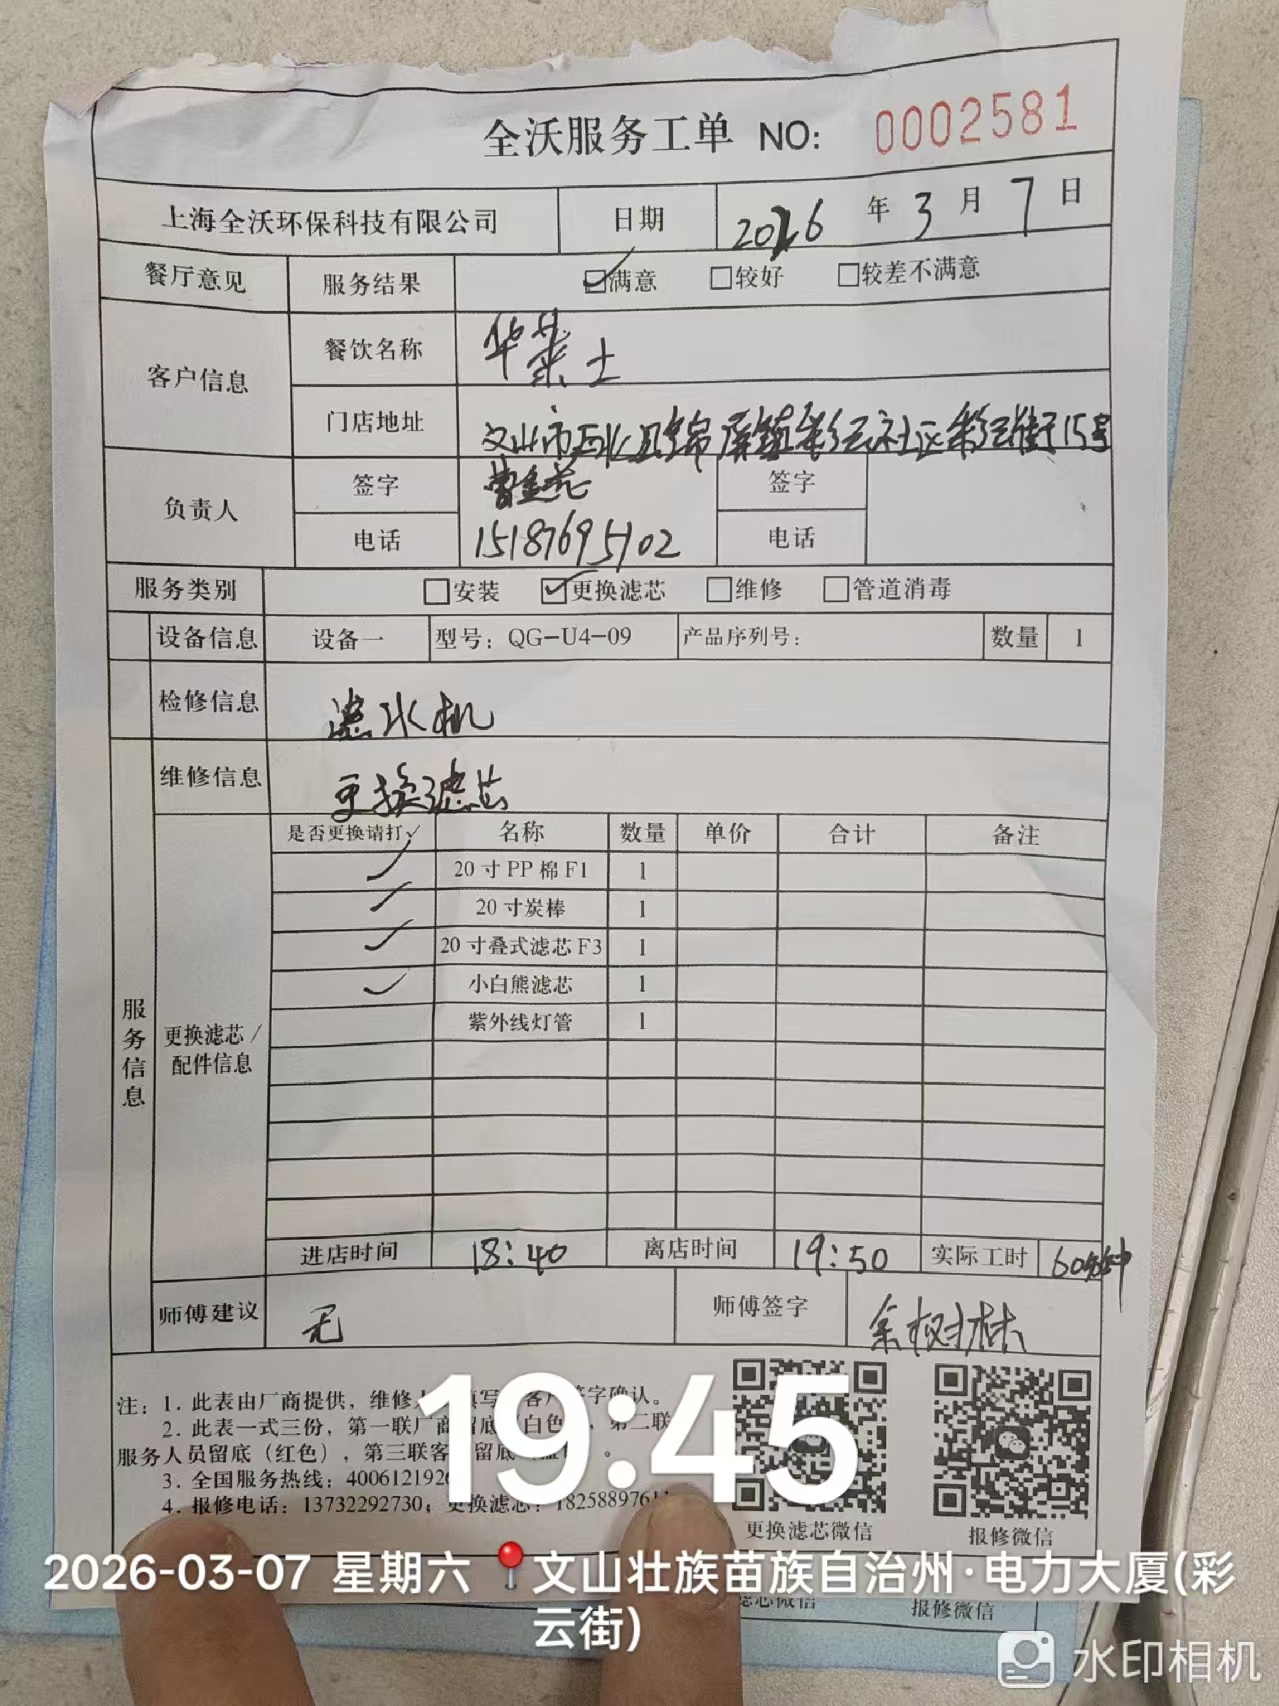 全沃服务工单 NO: 0002581
上海全沃环保科技有限公司 日期 2026 年 3 月 7 日
餐厅意见 服务结果 ☑满意 □较好 □较差不满意
客户信息 餐饮名称 华莱士
门店地址 文山市西畴县锦屏镇彩云社区彩云街15号
负责人 签字 曹金花 签字
电话 15187695102 电话
服务类别 □安装 ☑更换滤芯 □维修 □管道消毒
设备信息 设备一 型号: QG-U4-09 产品序列号: 数量 1
检修信息 滤水机
维修信息 更换滤芯
服务信息
更换滤芯/配件信息
是否更换请打✓ 名称 数量 单价 合计 备注
✓ 20寸PP棉F1 1
✓ 20寸炭棒 1
✓ 20寸叠式滤芯F3 1
✓ 小白熊滤芯 1
紫外线灯管 1
进店时间 18:40 离店时间 19:50 实际工时 60分钟
师傅建议 无 师傅签字 余树林
注: 1. 此表由厂商提供, 维修人 填写 客户签字确认。
2. 此表一式三份, 第一联厂商留底(白色), 第二联
服务人员留底(红色), 第三联客 留底 。
3. 全国服务热线: 4006121926
4. 报修电话: 13732292730; 更换滤芯: 1825889761
更换滤芯微信 报修微信
19:45
2026-03-07 星期六 文山壮族苗族自治州·电力大厦(彩
云街)
滤芯微信 报修微信
水印相机